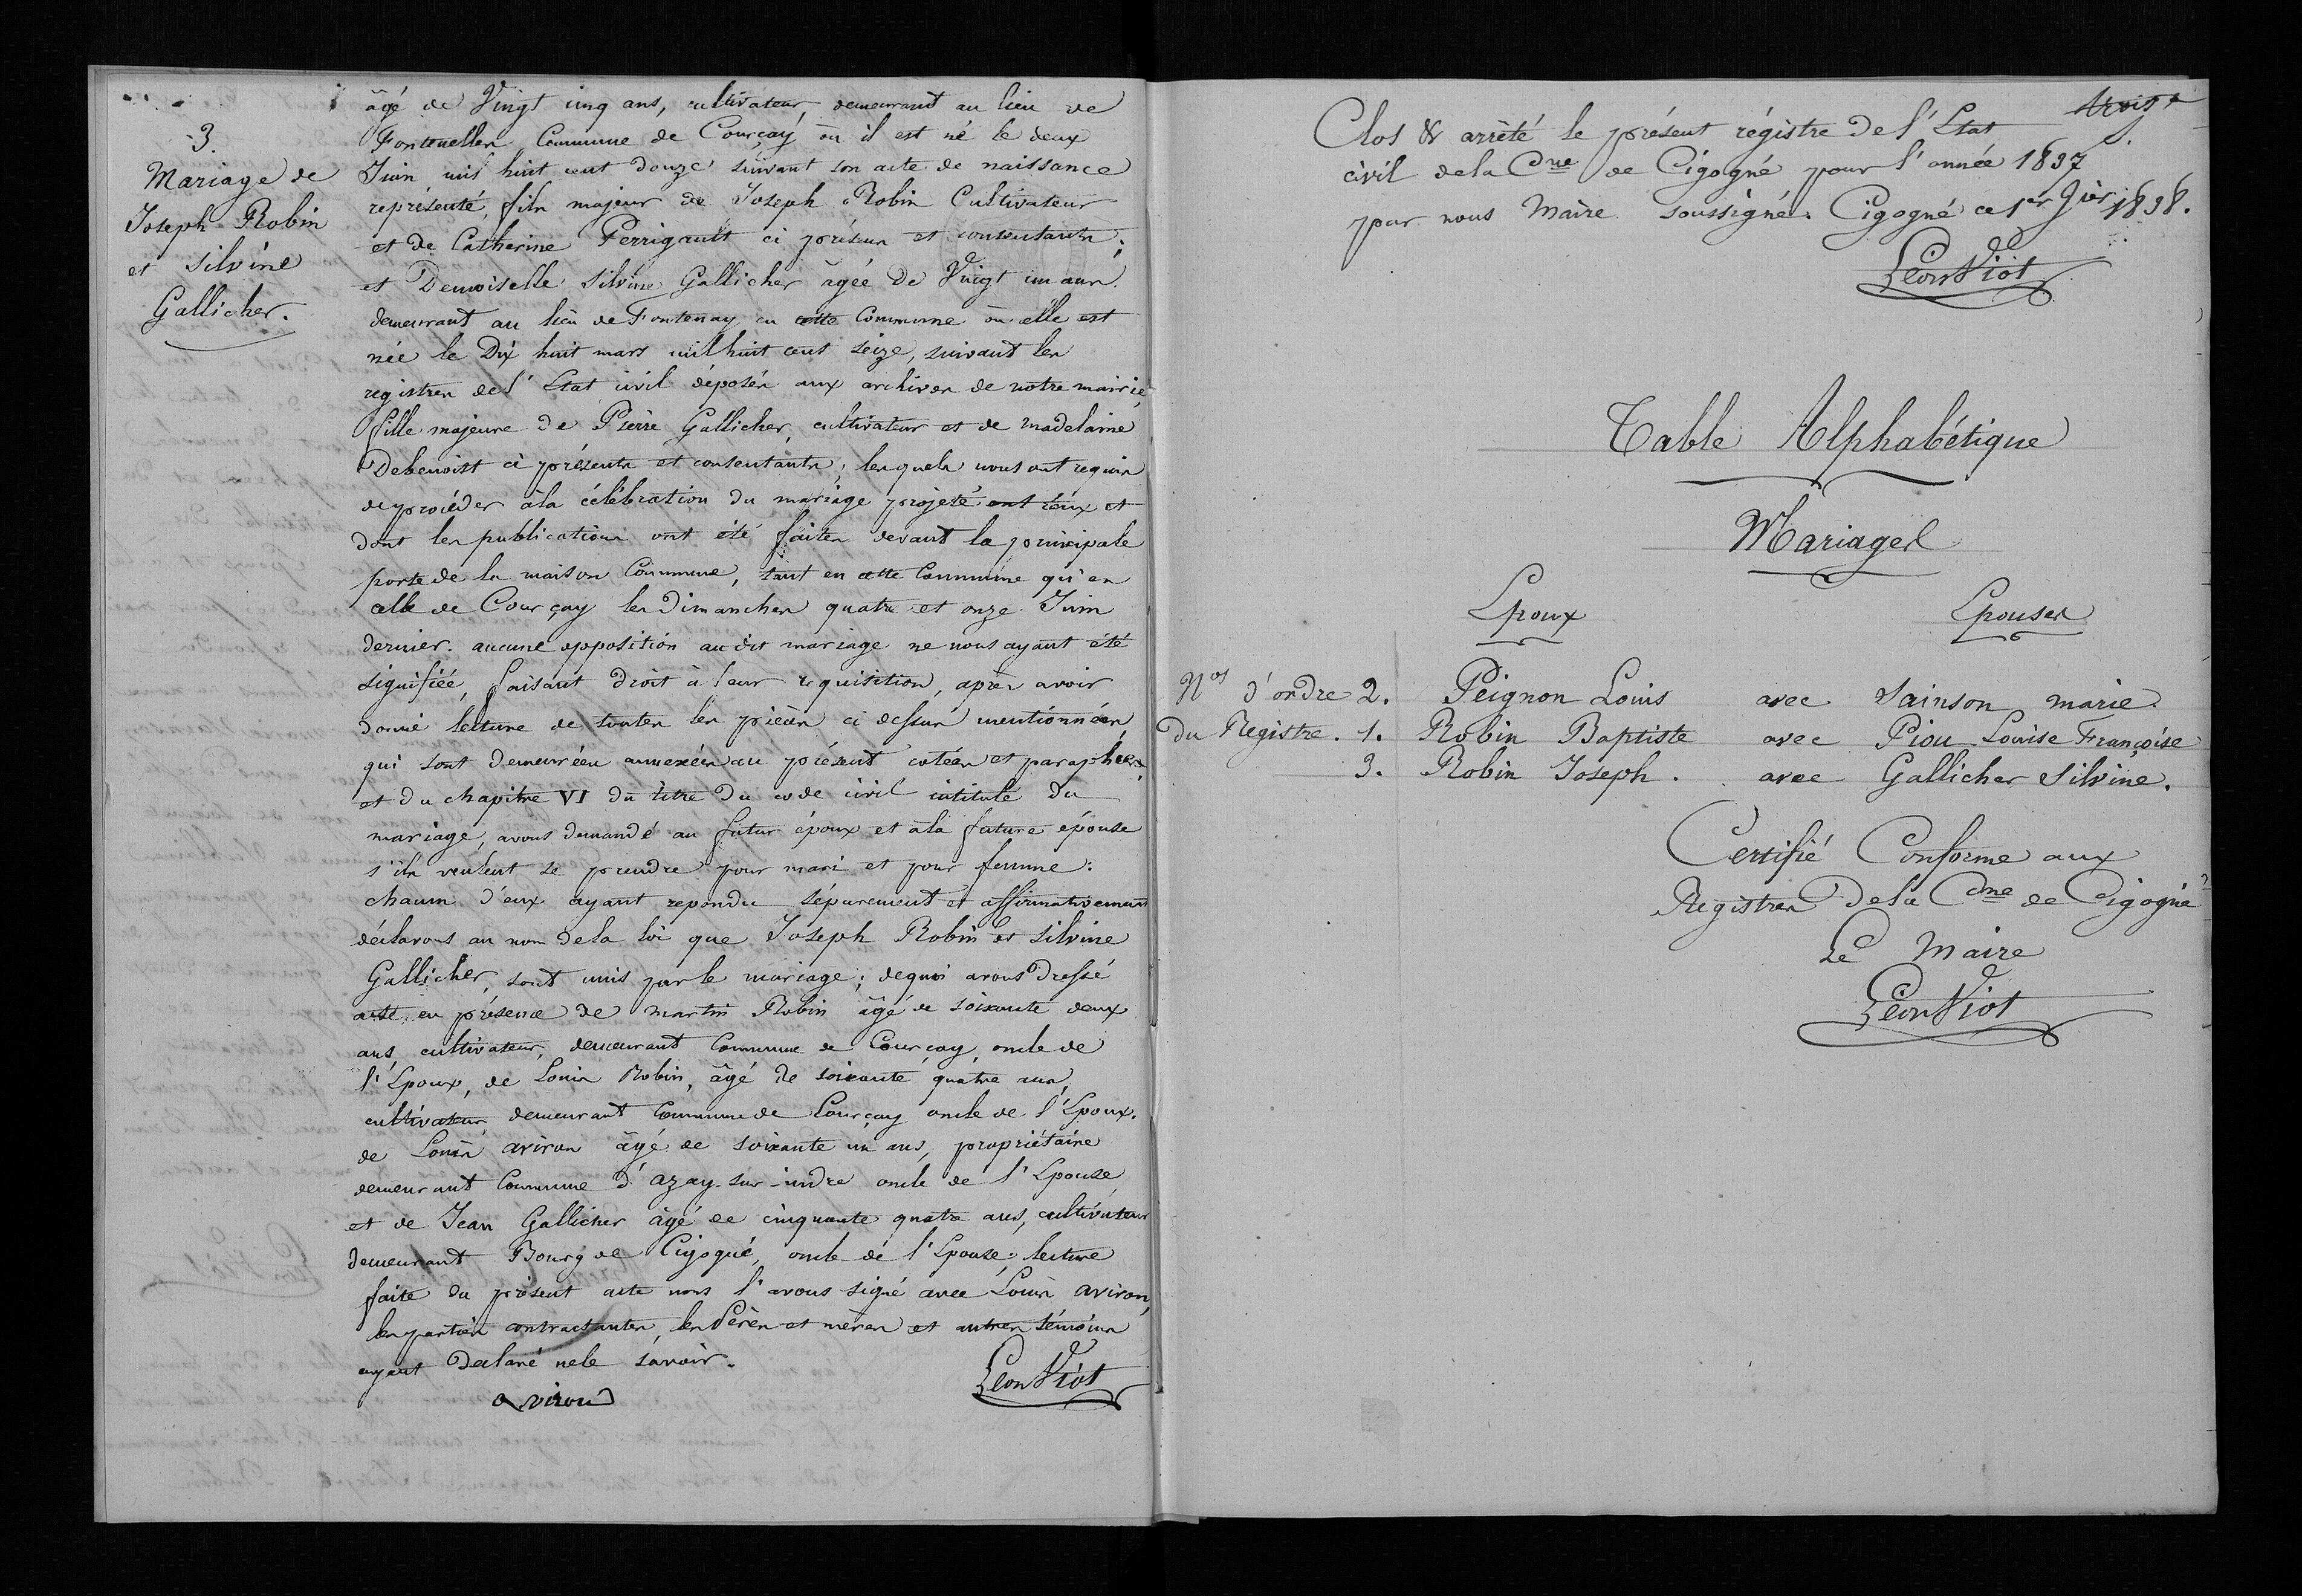 3.
Mariage de
Joseph Robin
et Silvine
Gallicher.
âgé de Vingt cinq ans, cultivateur, demeurant au lieu de
Commune de Courçay où il est né le deux
Juin mil huit cent douze suivant son acte de naissance
représenté, fils majeur de Joseph Robin Cultivateur
et de Catherine Perrigault ci présens et consentants;
et Demoiselle Silvine Gallicher âgée de Vingt un ans.
demeurant au lieu de Fontenay en cette Commune où elle est
née le Dix huit mars mil huit cent seize, suivant les
registres de l'Etat civil déposés aux archives de notre mairie,
fille majeure de Pierre Gallicher, cultivateur et de Madelaine
Debenoist ci présents et consentants; lesquels nous ont requis
de procéder à la célébration du mariage projeté entr'eux et
dont les publications ont été faites devant la principale
porte de la maison Commune, tant en cette Commune qu'en
celle de Courçay les Dimanches quatre et onze Juin
dernier. aucune opposition audit mariage ne nous ayant été
signifiée, faisant droit à leur requisition, après avoir
donné lecture de toutes les pièces ci dessus mentionnées,
qui sont demeurées annexées au présent cotées et paraphées,
et du chapitre VI du titre du code civil intitulé du
mariage, avons demandé au futur époux et à la future épouse
s'ils veulent se prendre pour mari et pour femme:
chacun d'eux ayant repondu séparement et affirmativement
déclarons au nom de la loi que Joseph Robin et Silvine
Gallicher, sont unis par le mariage; de quoi avons dressé
acte en présence de Martin Robin âgé de soixante deux
ans, cultivateur, demeurant Commune de Courçay, oncle de
l'Epoux, de Louis Robin, âgé de soixante quatre ans,
cultivateur demeurant Commune de Courçay oncle de l'Epoux.
de Louis Aviron âgé de soixante un ans, propriétaire
demeurant Commune d'Azay-sur-indre oncle de l'Epouse
et de Jean Gallicher âgé de cinquante quatre ans, cultivateur
demeurant Bourg de Cigogné, oncle de l'Epouse; lecture
faite du présent acte nous l'avons signé avec Louis Aviron,
les parties contractantes, les Pères et mères et autres témoins
ayant déclaré ne le savoir.
aviron
Leon Viot
trois
Clos & arrêté le présent régistre de l'Etat
civil de la Cne de Cigogné pour l'année 1837
par nous Maire soussigné. Cigogné ce 1er Jier 1838.
Leon Viot
Table Alphabétique
Mariages
Epoux
Epouses
Nos d'ordre 2. Peignon Louis avec Sainson marie
du Registre. 1. Robin Baptiste avec Piou Louise Françoise
3. Robin Joseph. avec Gallicher Silvine.
Certifié Conforme aux
Registres de la Cne de Cigogné
Le Maire
Leon Viot